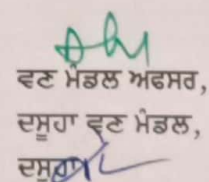 ਵਣ ਮੰਡਲ ਅਫਸਰ,
ਦਸੂਹਾ ਵਣ ਮੰਡਲ,
ਦਸੂਹਾ